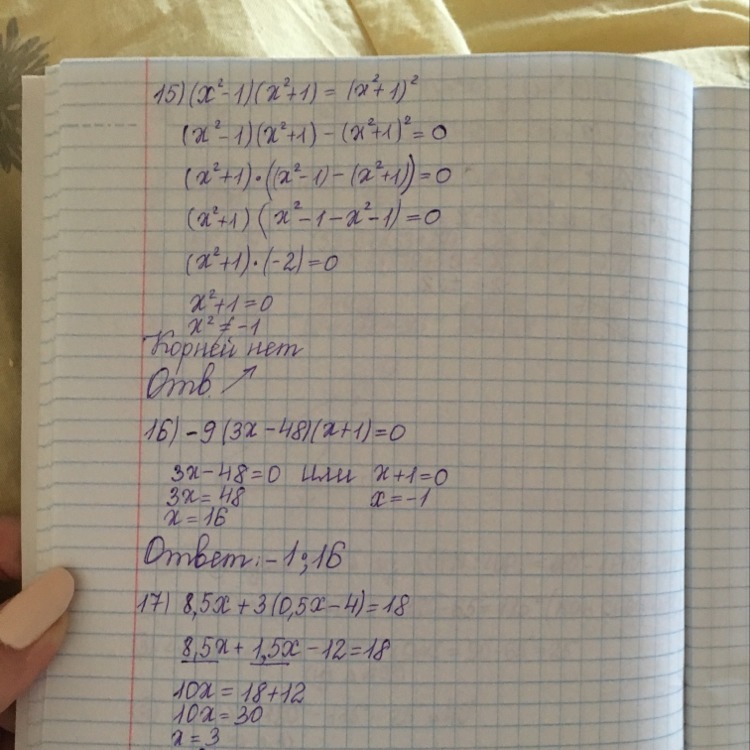 15) (x²-1)(x²+1) = (x²+1)²
(x²-1)(x²+1) - (x²+1)² = 0
(x²+1)·((x²-1) - (x²+1)) = 0
(x²+1)(x²-1-x²-1) = 0
(x²+1)·(-2) = 0
x²+1=0
x² ≠ -1
Корней нет
Отв. ↗
16) -9(3x-48)(x+1)=0
3x-48=0 или x+1=0
3x=48 x=-1
x=16
Ответ: -1; 16
17) 8,5x + 3(0,5x-4)=18
8,5x + 1,5x - 12 = 18
10x = 18+12
10x = 30
x = 3